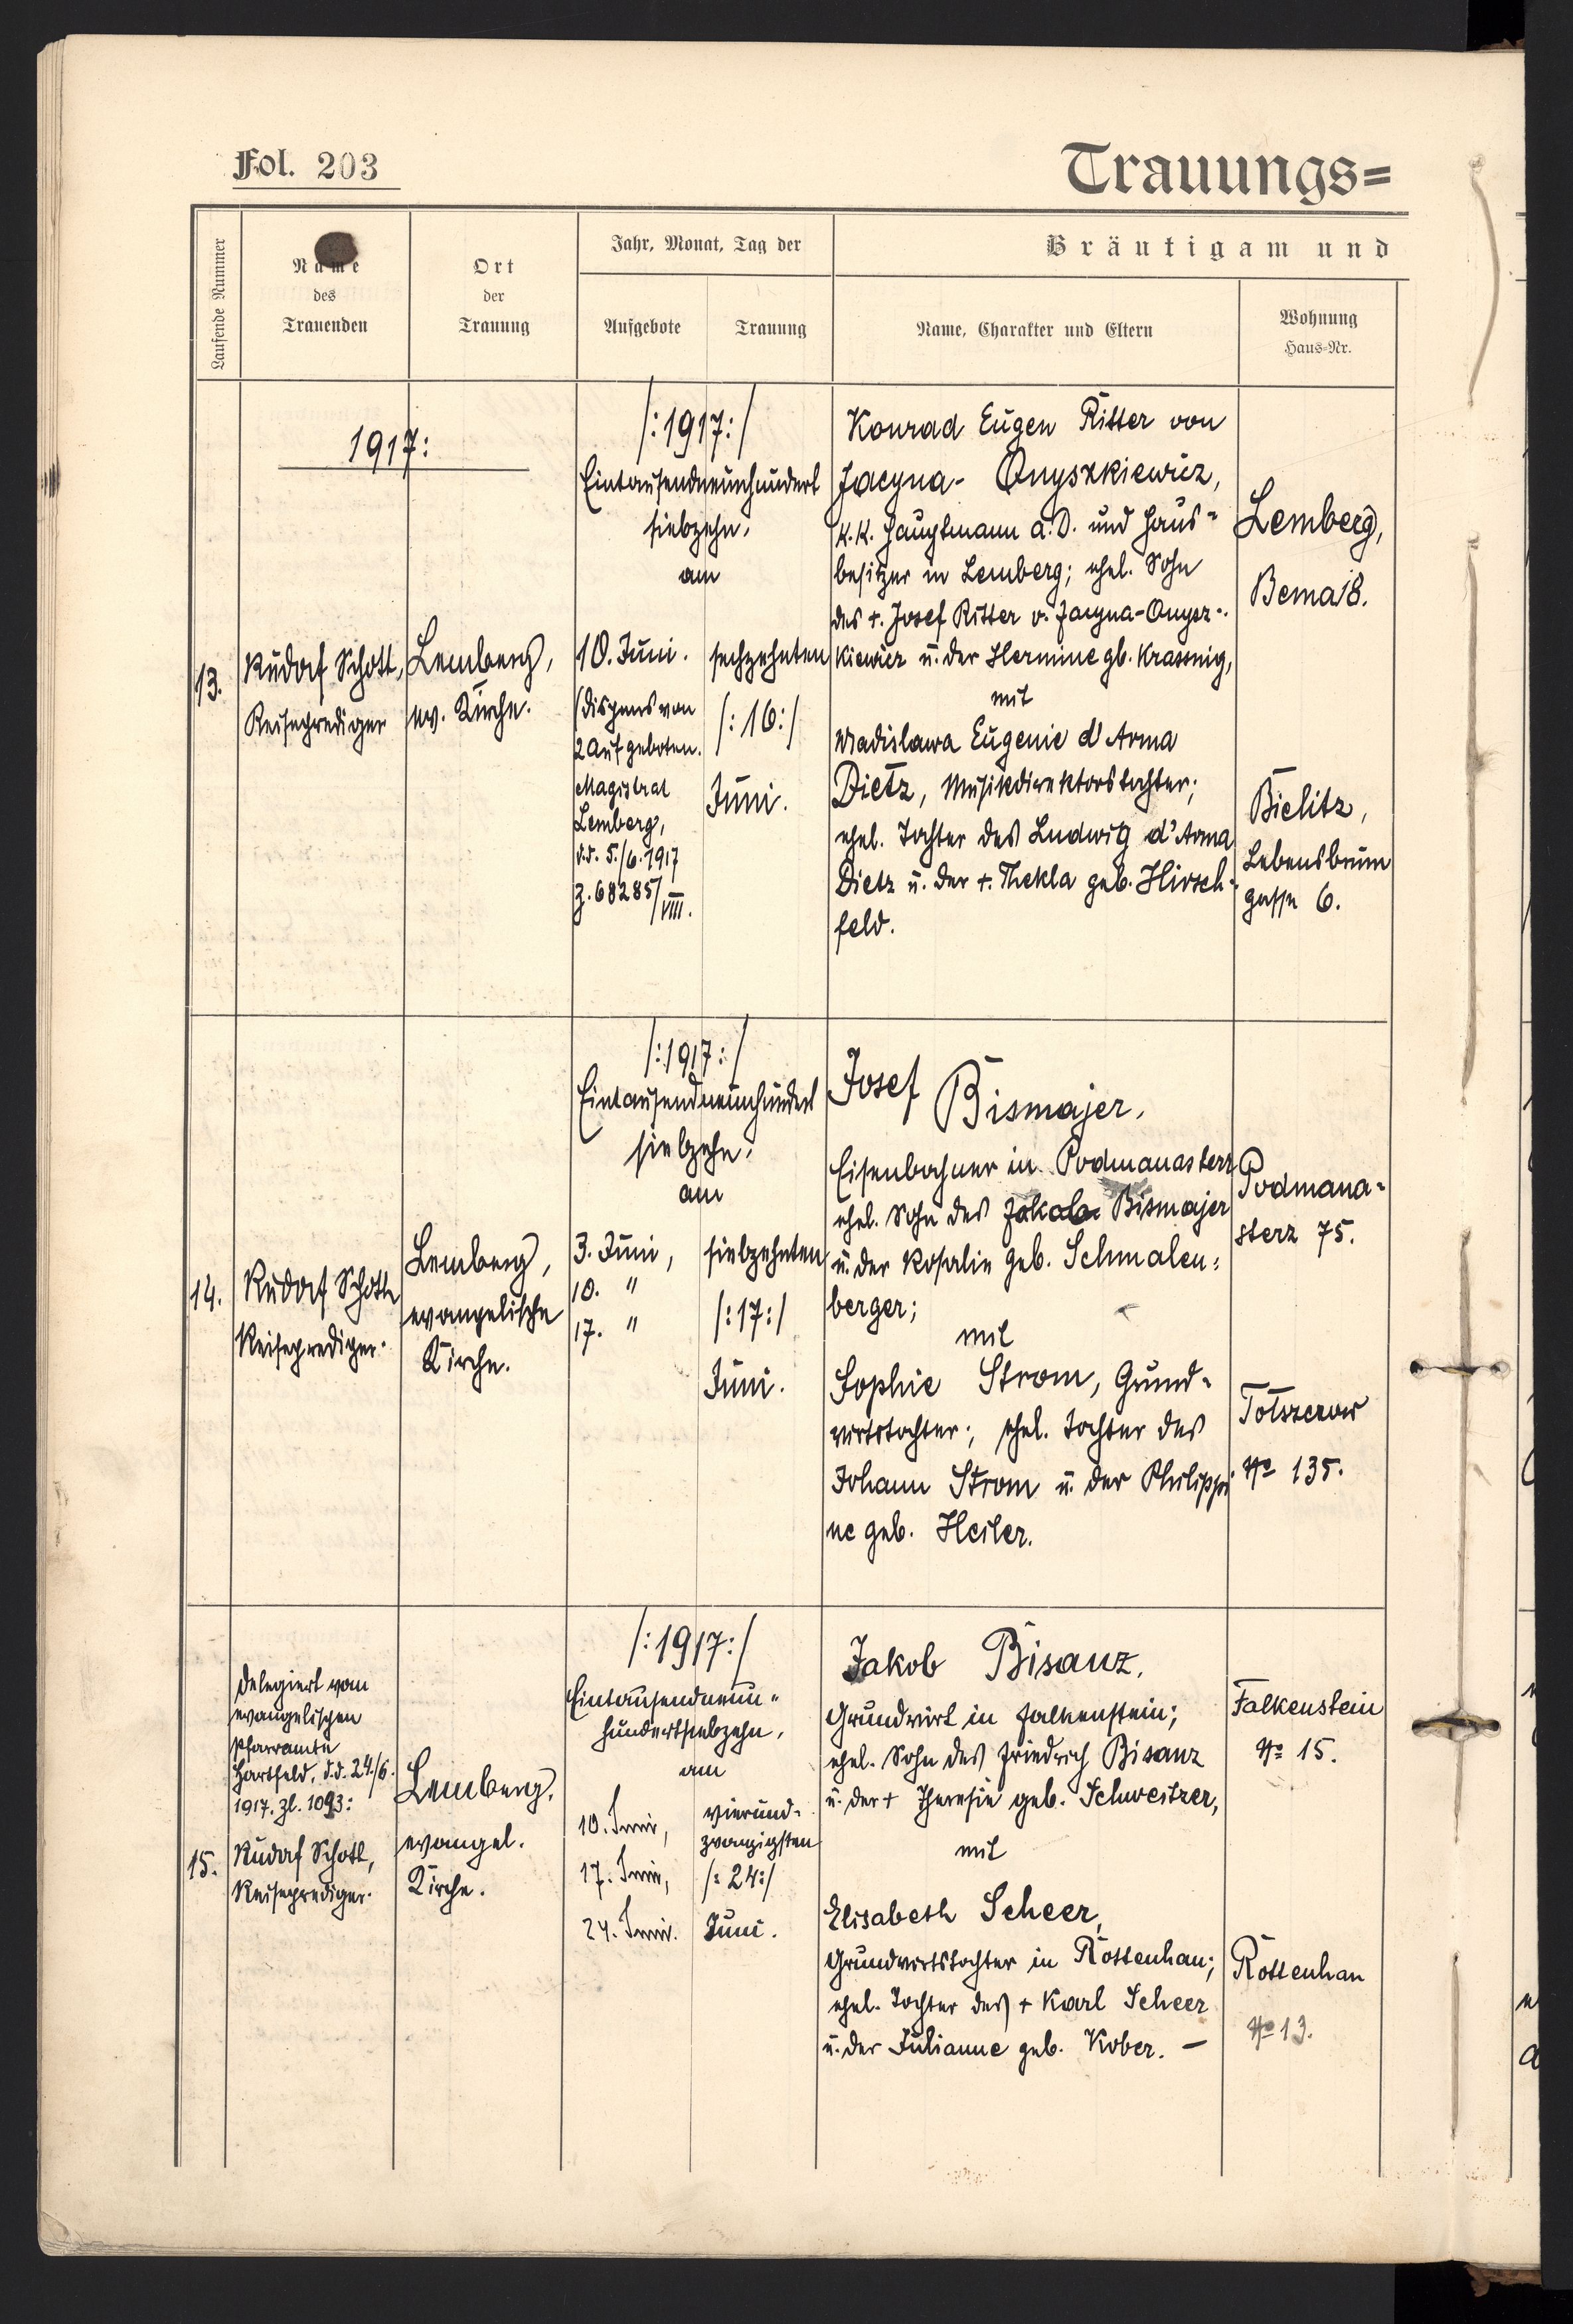 Fol. 203
Trauungs=
Laufende Nummer
Name
des
Trauenden
Ort
der
Trauung
Jahr, Monat, Tag der
Aufgebote
Trauung
Bräutigam und
Name, Charakter und Eltern
Wohnung
Haus=Nr.
1917:
13.
Rudolf Schott,
Reiseprediger
Lemberg,
ev. Kirche.
/:1917:/
Eintausendneunhundert
siebzehn,
am
10. Juni.
(Dispens von
2 Aufgeboten.
Magistrat
Lemberg,
d.d. 5./6. 1917
Z. 68285/VIII.
sechzehnten
/:16:/
Juni.
Konrad Eugen Ritter von
Jacyna- Onyszkiewicz,
k.k. Hauptmann a.D. und Haus=
besitzer in Lemberg; ehel. Sohn
des +. Josef Ritter v. Jacyna-Onysz-
kiewicz u. der Hermine gb. Krassnig,
mit
Wladislawa Eugenie d'Arma
Dietz, Musikdirektorstochter;
ehel. Tochter des Ludwig d'Arma
Dietz u. der +. Thekla geb. Hirsch-
feld.
Lemberg,
Bema 18.
Bielitz,
Lebensbrunn
gasse 6.
14.
Rudolf Schott
Reiseprediger.
Lemberg,
evangelische
Kirche.
/:1917:/
Eintausendneunhundert
siebzehn,
am
3. Juni,
10. "
17. "
siebzehnten
/:17:/
Juni.
Josef
Bismajer,
Eisenbahner in Podmanasterz
ehel. Sohn des Jakob Bismajer
u. der Rosalie geb. Schmalen=
berger;
mit
Sophie Strom, Grund-
wirtstochter; ehel. Tochter des
Johann Strom u. der Philippi
ne geb. Heiler.
Podmana=
sterz 75.
Totszczow
No 135.
15.
Delegiert vom
evangelischen
Pfarramte
Hartfeld, d.d. 24./6.
1917. Zl. 1093:
Rudolf Schott,
Reiseprediger.
Lemberg,
evangel.
Kirche.
/:1917:/
Eintausendneun-
hundertsiebzehn,
am
10. Juni,
17. Juni,
24. Juni.
vierund-
zwanzigsten
/:24:/
Juni.
Jakob Bisanz,
Grundwirt in Falkenstein;
ehel. Sohn des Friedrich Bisanz
u. der + Theresie geb. Schweitzer,
mit
Elisabeth Scheer,
Grundwirtstochter in Rottenhan;
ehel. Tochter des + Karl Scheer
u. der Julianne geb. Kober. —
Falkenstein
No 15.
Rottenhan
No 13.